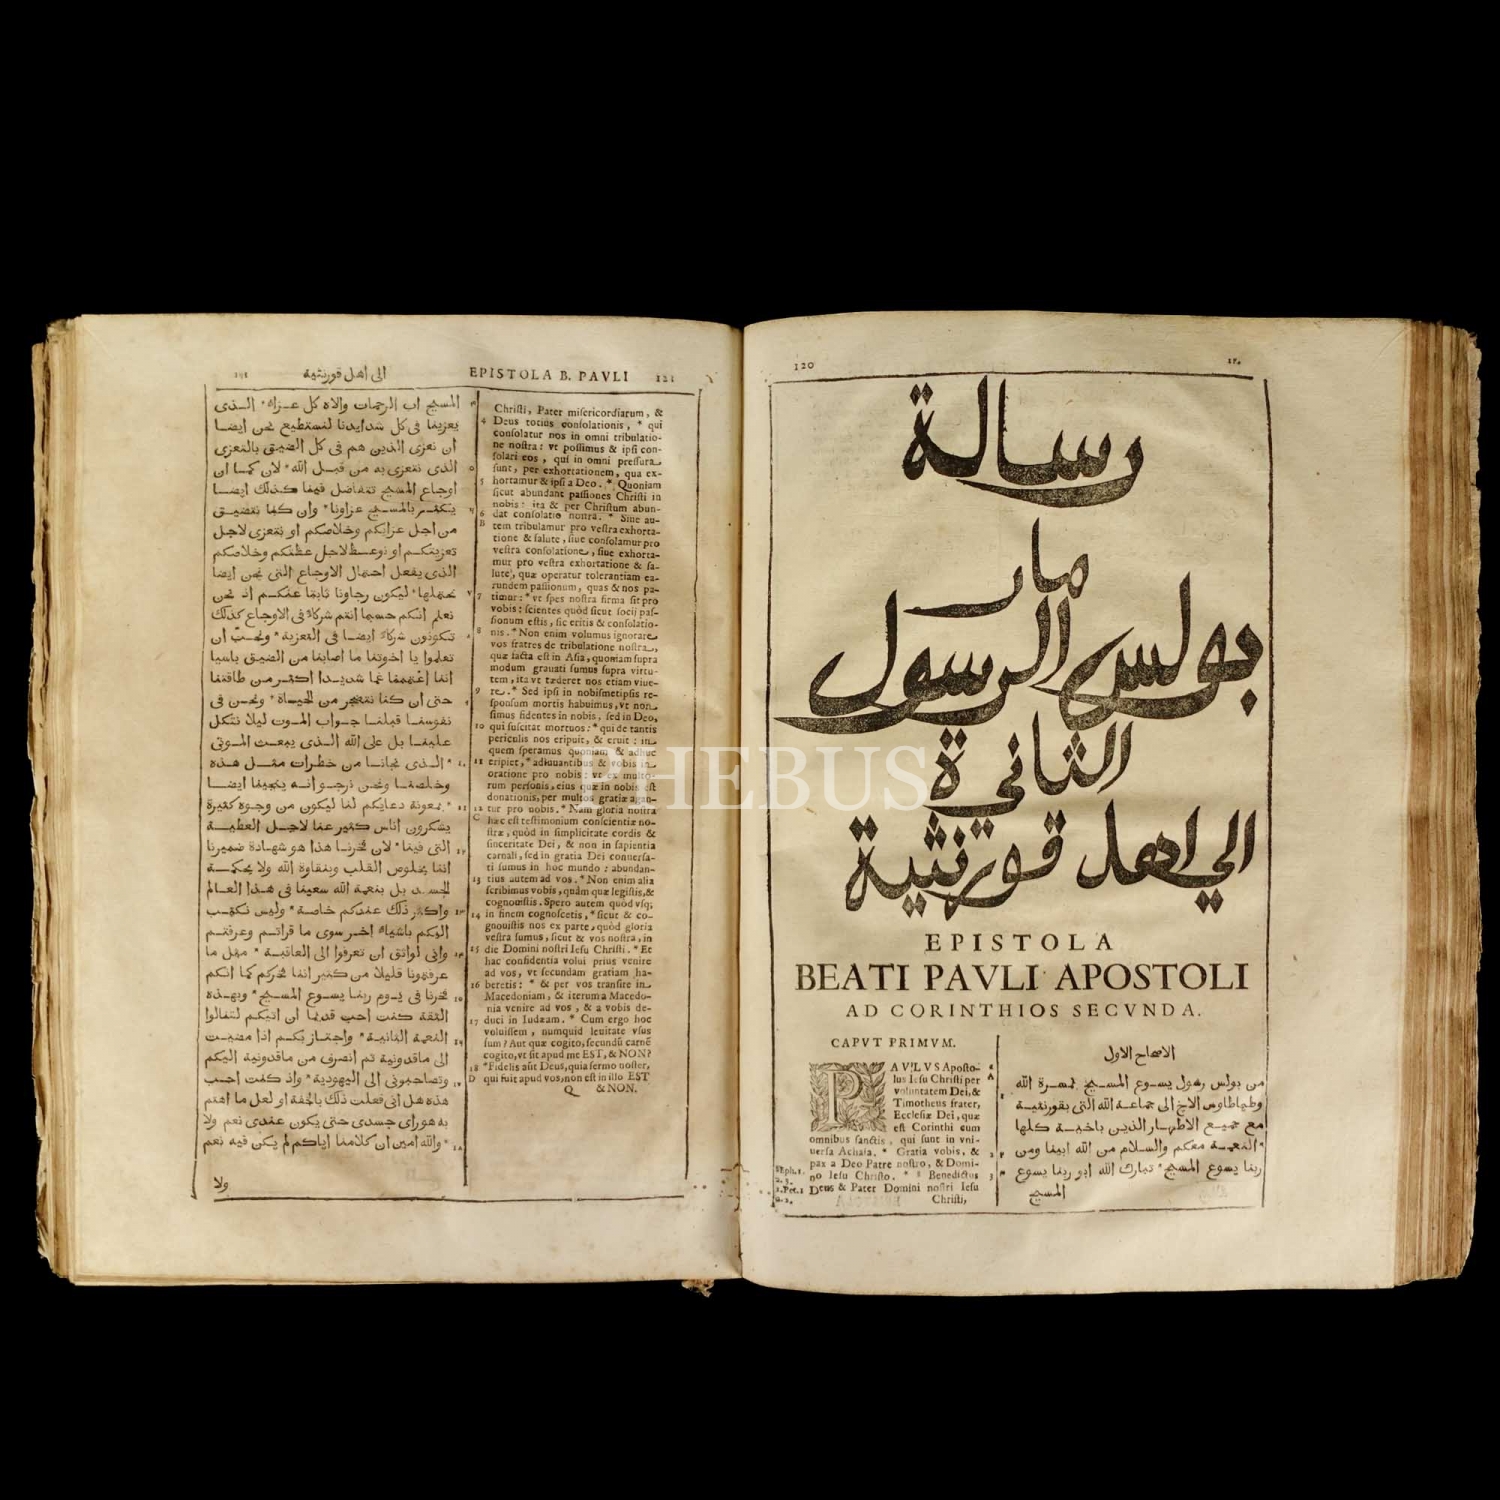 120
١٢٠
رسالة
مار
بولس الرسول
الثانية
الي اهل قورنثية
EPISTOLA
BEATI PAVLI APOSTOLI
AD CORINTHIOS SECVNDA.
CAPVT PRIMVM.
PAVLVS Apoſto-
lus Ieſu Chriſti per
voluntatem Dei, &
Timotheus frater,
Eccleſiæ Dei, quæ
eſt Corinthi cum
omnibus ſanctis, qui ſunt in vni-
uerſa Achaia. * Gratia vobis, &
pax a Deo Patre noſtro, & Domi-
no Ieſu Chriſto. * Benedictus
Deus & Pater Domini noſtri Ieſu
Chriſti,
الاصحاح الاول
من بولس رسول يسوع المسيح بمسرة الله
وطيماطاوس الاخ الى جماعة الله التى بقورنثية
مع جميع الاطهار الذين باخية كلها
* النعمة معكم والسلام من الله ابينا ومن
ربنا يسوع المسيح * تبارك الله ابو ربنا يسوع
المسيح
EPISTOLA B. PAVLI 121
Chriſti, Pater miſericordiarum, &
Deus totius conſolationis, * qui
conſolatur nos in omni tribulatio-
ne noſtra: vt poſſimus & ipſi con-
ſolari eos, qui in omni preſſura
ſunt, per exhortationem, qua ex-
hortamur & ipſi a Deo. * Quoniam
ſicut abundant paſſiones Chriſti in
nobis: ita & per Chriſtum abun-
dat conſolatio noſtra. * Siue au-
tem tribulamur pro veſtra exhorta-
tione & ſalute, ſiue conſolamur pro
veſtra conſolatione, ſiue exhorta-
mur pro veſtra exhortatione & ſa-
lute, quæ operatur tolerantiam ea-
rundem paſſionum, quas & nos pa-
timur: * vt ſpes noſtra firma ſit pro
vobis: ſcientes quòd ſicut ſocij paſ-
ſionum eſtis, ſic eritis & conſolatio-
nis. * Non enim volumus ignorare
vos fratres de tribulatione noſtra,
quæ facta eſt in Aſia, quoniam ſupra
modum grauati ſumus ſupra virtu-
tem, ita vt tæderet nos etiam viue-
re. * Sed ipſi in nobiſmetipſis re-
ſponſum mortis habuimus, vt non
ſimus fidentes in nobis, ſed in Deo,
qui ſuſcitat mortuos: * qui de tantis
periculis nos eripuit, & eruit: in
quem ſperamus quoniam & adhuc
eripiet, * adiuuantibus & vobis in
oratione pro nobis: vt ex multo-
rum perſonis, eius quæ in nobis eſt
donationis, per multos gratiæ agan-
tur pro nobis. * Nam gloria noſtra
hæc eſt teſtimonium conſcientiæ no-
ſtræ, quòd in ſimplicitate cordis &
ſinceritate Dei, & non in ſapientia
carnali, ſed in gratia Dei conuerſa-
ti ſumus in hoc mundo: abundan-
tius autem ad vos. * Non enim alia
ſcribimus vobis, quàm quæ legiſtis, &
cognouiſtis. Spero autem quòd vſq;
in finem cognoſcetis, * ſicut & co-
gnouiſtis nos ex parte, quòd gloria
veſtra ſumus, ſicut & vos noſtra, in
die Domini noſtri Ieſu Chriſti. * Et
hac confidentia volui prius venire
ad vos, vt ſecundam gratiam ha-
beretis: * & per vos tranſire in
Macedoniam, & iterum a Macedo-
nia venire ad vos, & a vobis de-
duci in Iudæam. * Cum ergo hoc
voluiſſem, numquid leuitate vſus
ſum? Aut quæ cogito, ſecundũ carnẽ
cogito, vt ſit apud me EST, & NON?
* Fidelis aũt Deus, quia ſermo noſter,
qui fuit apud vos, non eſt in illo EST
Q & NON.
الى اهل قورنثية
المسيح اب الرحمات والاه كل عزاء * الذى
يعزينا فى كل شدايدنا لنستطيع نحن ايضا
ان نعزى الذين هم فى كل الضيق بالتعزى
الذى نتعزى به من قبل الله * لان كما ان
اوجاع المسيح تتفاضل فينا كذلك ايضا
يتكثر بالمسيح عزاونا * وان كنا نتضيق
من اجل عزايكم وخلاصكم او نتعزى لاجل
تعزيتكم او نوعظ لاجل عظتكم وخلاصكم
الذى يفعل احتمال الاوجاع التى نحن ايضا
نحتملها * ليكون رجاونا ثابتا عنكم اذ نحن
نعلم انكم حسبما انتم شركاء فى الاوجاع كذلك
تكونون شركاء ايضا فى التعزية * ونحب ان
تعلموا يا اخوتنا ما اصابنا من الضيق باسيا
اننا اغتممنا غما شديدا اكثر من طاقتنا
حتى ان كنا نتضجر من الحياة * ونحن فى
نفوسنا قبلنا جواب الموت ليلا نتكل
علينا بل على الله الذى يبعث الموتى
* الذى نجانا من خطرات مثل هذه
وخلصنا ونحن نرجو انه ينجينا ايضا
* بمعونة دعايكم لنا ليكون من وجوه كثيرة
يشكرون اناس كثير عنا لاجل العطية
التى فينا * لان فخرنا هذا هو شهادة ضميرنا
اننا بخلوص القلب وبنقاوة الله ولا بحكمة
الجسد بل بنعمة الله سعينا فى هذا العالم
واكثر ذلك عندكم خاصة * وليس نكتب
اليكم باشياء اخر سوى ما قراتم وعرفتم
وانى لواثق ان تعرفوا الى العاقبة * مثل ما
عرفتمونا قليلا من كثير اننا فخركم كما انكم
فخرنا فى يوم ربنا يسوع المسيح * وبهذه
الثقة كنت احب قديما ان اتيكم لتنالوا
النعمة الثانية * واجتاز بكم اذا مضيت
الى ماقدونية ثم انصرف من ماقدونية اليكم
وتصاحبونى الى اليهودية * واذ كنت احب
هذه هل انى فعلت ذلك بالخفة او لعل ما اهتم
به هو راى جسدى حتى يكون عندى نعم ولا
* والله امين ان كلامنا اياكم لم يكن فيه نعم
ولا
PHEBUS